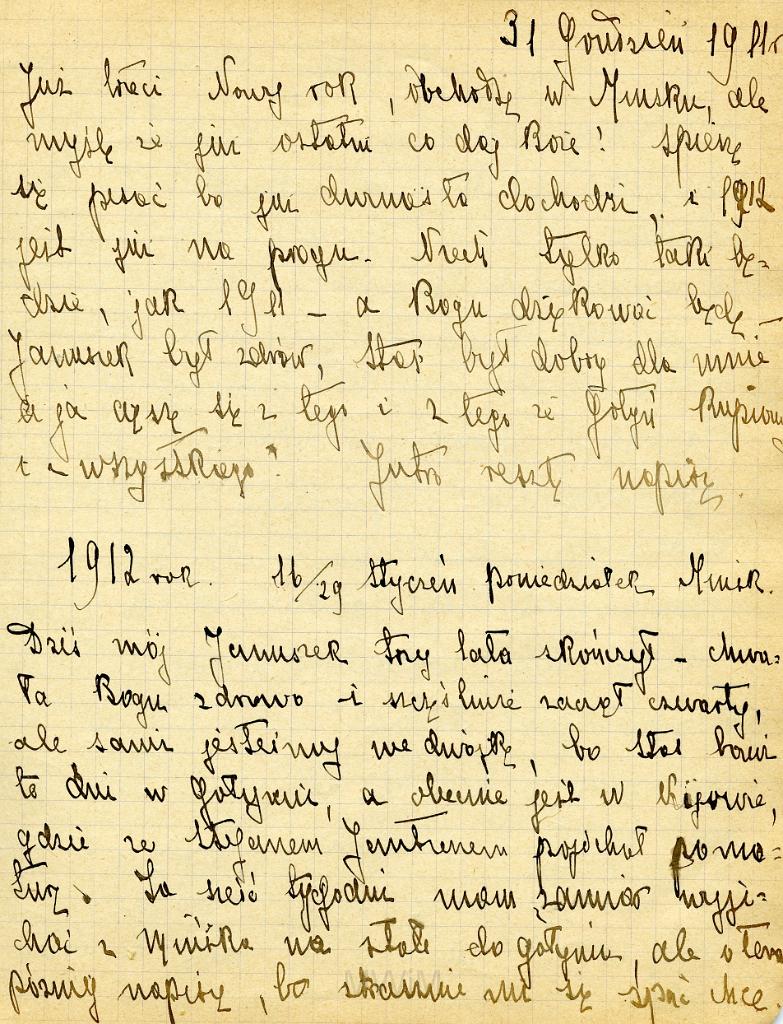 31 Grudzień 1911 r
Już trzeci Nowy rok, obchodzę w Minsku, ale
myślę że już ostatni co daj Boże! Spieszę
się pisać bo już dwunasta dochodzi, i 1912
jest już na progu. Niech tylko taki bę=
dzie, jak 1911 – a Bogu dziękować będę –
Januszek był zdrów, Staś był dobry dla mnie
a ja cieszę się z tego i z tego że Gotyń
i – wszystkiego". Jutro resztę napiszę.
1912 rok. 16/29 Styczeń poniedziałek Minsk.
Dziś mój Januszek trzy lata skończył – chwa=
ła Bogu zdrowo i szczęśliwie zaczął czwarty,
ale sami jesteśmy we dwójkę, bo Staś bawi
te dni w Gotyni, a obecnie jest w Kijowie,
gdzie ze Stefanem pojechał po ma=
. Za sześć tygodni mam zamiar wyje=
chać z Mińska na stałe do Gotynia, ale o tem
później napiszę, bo strasznie mi się spać chce.